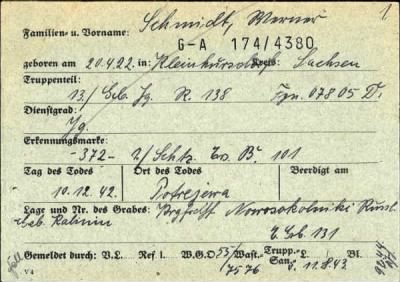 Schmidt, Werner 1
Familien- u. Vorname:
G-A 174/4380
geboren am 20.4.22 in: Kleinhursdorf Kreis: Sachsen
Truppenteil:
13./Geb. Jg. R. 138 Fpn. 07805 D.
Dienstgrad:
Jg.
Erkennungsmarke:
-372- 2/Schtz. Es. B. 101
Tag des Todes Ort des Todes Beerdigt am
10.12.42. Potrejewa
Lage und Nr. des Grabes: Nowosokolniki Russl.
Geb. Kalinin
2. Geb. 131
Gemeldet durch: V.L. Ref I. W.G.O 55/ Wast.- Trupp.- L. Bl.
7576 San. v. 11.8.43.
V 4